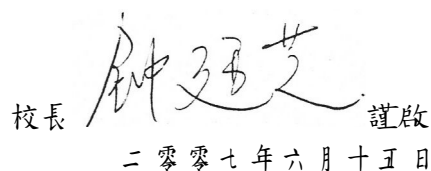 校長 鍾廷芝 謹啟
二零零七年六月十五日